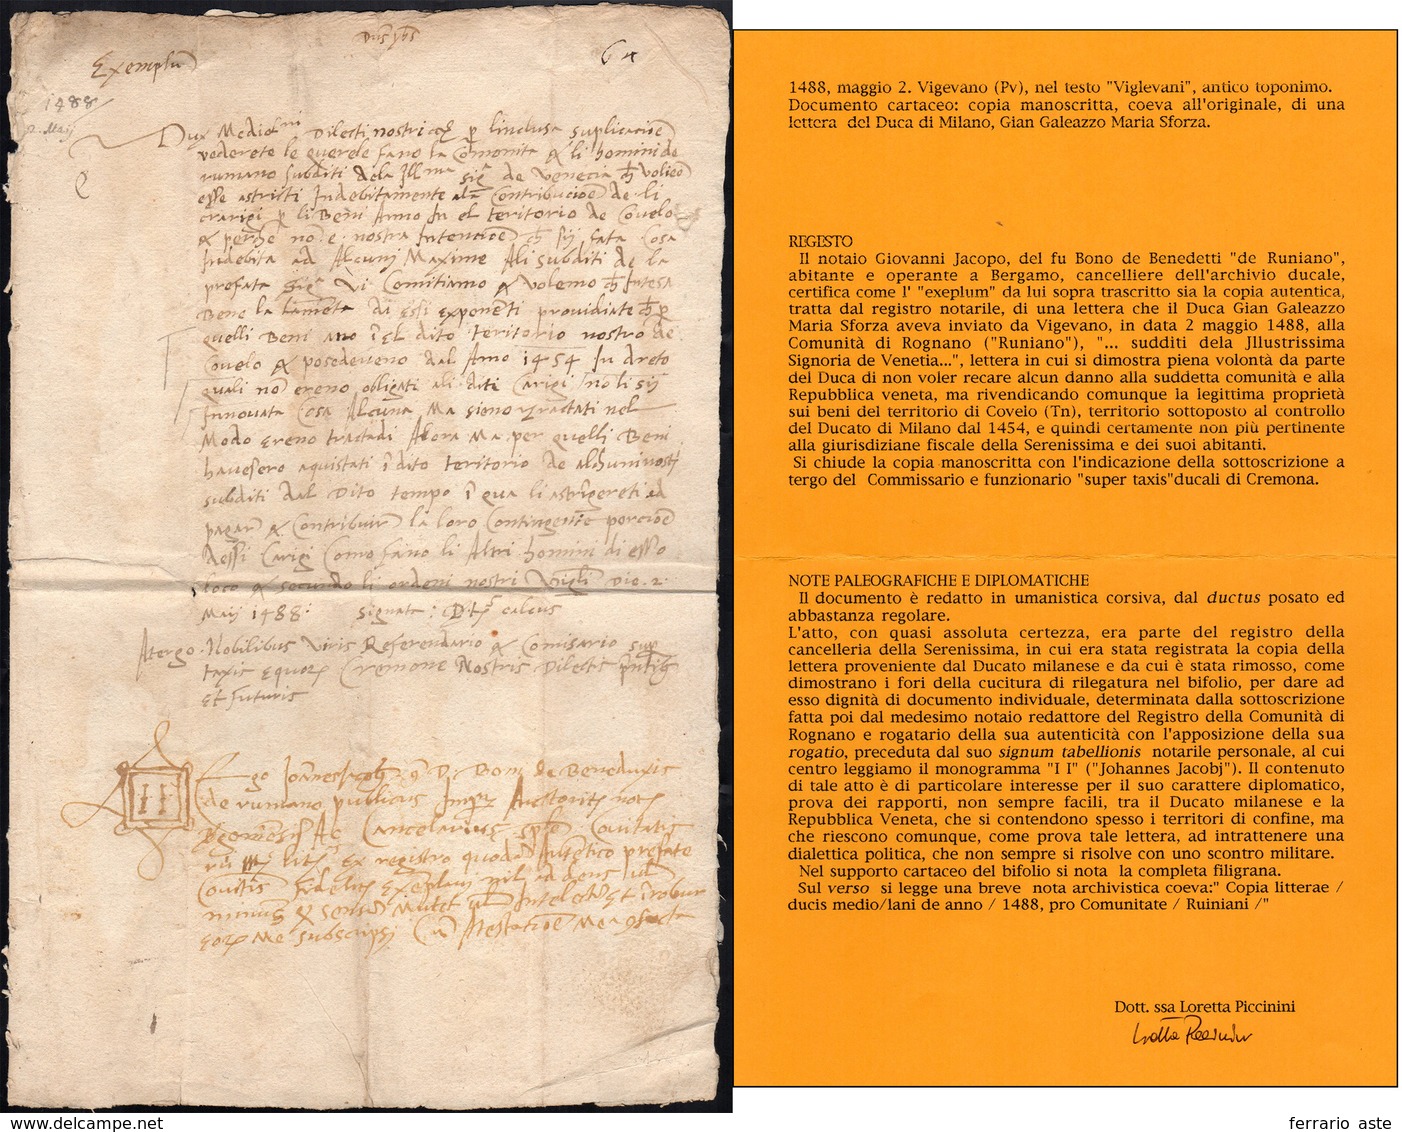 Exemplum
64
1488
2. Maij
Dux Mediolani Dilecti nostri per linclusa suplicacione
vederete le querele fano la Comonita & li homini de
rumano subditi dela Illma Sigria de Venecia
esse astricti Indebitamente ala Contribucione de li
carigi per li Beni Anno In el teritorio de Covelo
& perche non e nostra Intencione sij fata Cosa
Indebita ad Alcunj Maxime Ali subditi de la
prefata Vi Comitiamo & Volemo Intesa
Bene la lamenta di essi exponenti providiate
quelli Beni ano el dito teritorio nostro de
Covelo & posedeveno dal Anno 1454 In dreto
quali non ereno obligati ali diti Carigi no li sij
Innovata Cosa Alcuna Ma sieno tractati nel
Modo ereno tractadi Alora Ma per quelli Beni
havesero aquistati dito teritorio de alchuni nostri
subditi dal Dito tempo qua li astrigereti ad
pagar & Contribuir la loro Contingente porcione
desssi Carigi Como fano li Altri homini di esso
loco & secundo li ordeni nostri Die. 2.
Maij 1488: Signata: calcus
Atergo. Nobilibus Viris Referendario & Comisario super
taxis equorum Cremone Nostris Dilectis
et futuris
II
Ego Joannes Jacobus Boni de Beneductis
de rumano publicus Auctoritate
Ac Cancelarius Comitatis
ex registro quodam Autentico prefate
fideliter exemplum nil addens vel
minuens sensum Mutet vel Intelectum et robur
Me subscripsi Atestatione
1488, maggio 2. Vigevano (Pv), nel testo "Viglevani", antico toponimo.
Documento cartaceo: copia manoscritta, coeva all'originale, di una
lettera del Duca di Milano, Gian Galeazzo Maria Sforza.
REGESTO
Il notaio Giovanni Jacopo, del fu Bono de Benedetti "de Runiano",
abitante e operante a Bergamo, cancelliere dell'archivio ducale,
certifica come l' "exeplum" da lui sopra trascritto sia la copia autentica,
tratta dal registro notarile, di una lettera che il Duca Gian Galeazzo
Maria Sforza aveva inviato da Vigevano, in data 2 maggio 1488, alla
Comunità di Rognano ("Runiano"), "... sudditi dela Jllustrissima
Signoria de Venetia...", lettera in cui si dimostra piena volontà da parte
del Duca di non voler recare alcun danno alla suddetta comunità e alla
Repubblica veneta, ma rivendicando comunque la legittima proprietà
sui beni del territorio di Covelo (Tn), territorio sottoposto al controllo
del Ducato di Milano dal 1454, e quindi certamente non più pertinente
alla giurisdiziane fiscale della Serenissima e dei suoi abitanti.
Si chiude la copia manoscritta con l'indicazione della sottoscrizione a
tergo del Commissario e funzionario "super taxis"ducali di Cremona.
NOTE PALEOGRAFICHE E DIPLOMATICHE
Il documento è redatto in umanistica corsiva, dal ductus posato ed
abbastanza regolare.
L'atto, con quasi assoluta certezza, era parte del registro della
cancelleria della Serenissima, in cui era stata registrata la copia della
lettera proveniente dal Ducato milanese e da cui è stata rimosso, come
dimostrano i fori della cucitura di rilegatura nel bifolio, per dare ad
esso dignità di documento individuale, determinata dalla sottoscrizione
fatta poi dal medesimo notaio redattore del Registro della Comunità di
Rognano e rogatario della sua autenticità con l'apposizione della sua
rogatio, preceduta dal suo signum tabellionis notarile personale, al cui
centro leggiamo il monogramma "I I" ("Johannes Jacobj"). Il contenuto
di tale atto è di particolare interesse per il suo carattere diplomatico,
prova dei rapporti, non sempre facili, tra il Ducato milanese e la
Repubblica Veneta, che si contendono spesso i territori di confine, ma
che riescono comunque, come prova tale lettera, ad intrattenere una
dialettica politica, che non sempre si risolve con uno scontro militare.
Nel supporto cartaceo del bifolio si nota la completa filigrana.
Sul verso si legge una breve nota archivistica coeva:" Copia litterae /
ducis medio/lani de anno / 1488, pro Comunitate / Ruiniani /"
Dott. ssa Loretta Piccinini
Loretta Piccinini
ferrario aste